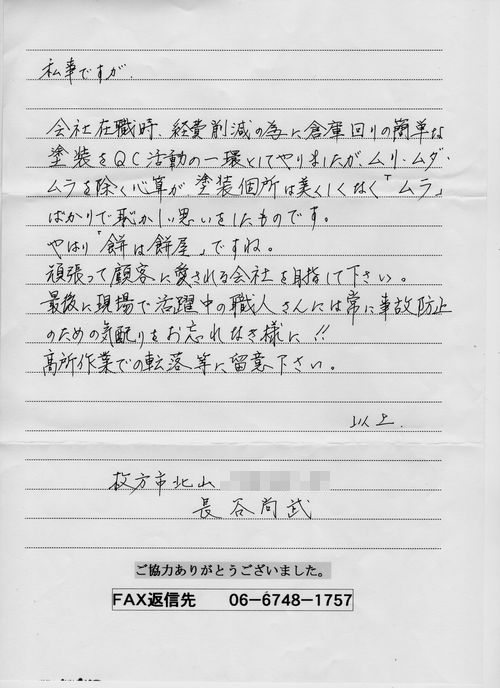 私事ですが、
会社在職時、経費削減の為に倉庫回りの簡単な
塗装をQC活動の一環としてやりましたが、ムリ・ムダ・
ムラを除く心算が、塗装個所は美くしくなく「ムラ」
ばかりで恥かしい思いをしたものです。
やはり「餅は餅屋」ですね。
頑張って顧客に愛される会社を目指して下さい。
最後に現場で活躍中の職人さんには常に事故防止
のための気配りをお忘れなき様に!!
高所作業での転落等に留意下さい。
以上.
枚方市北山
長谷尚武
ご協力ありがとうございました。
FAX返信先 06-6748-1757